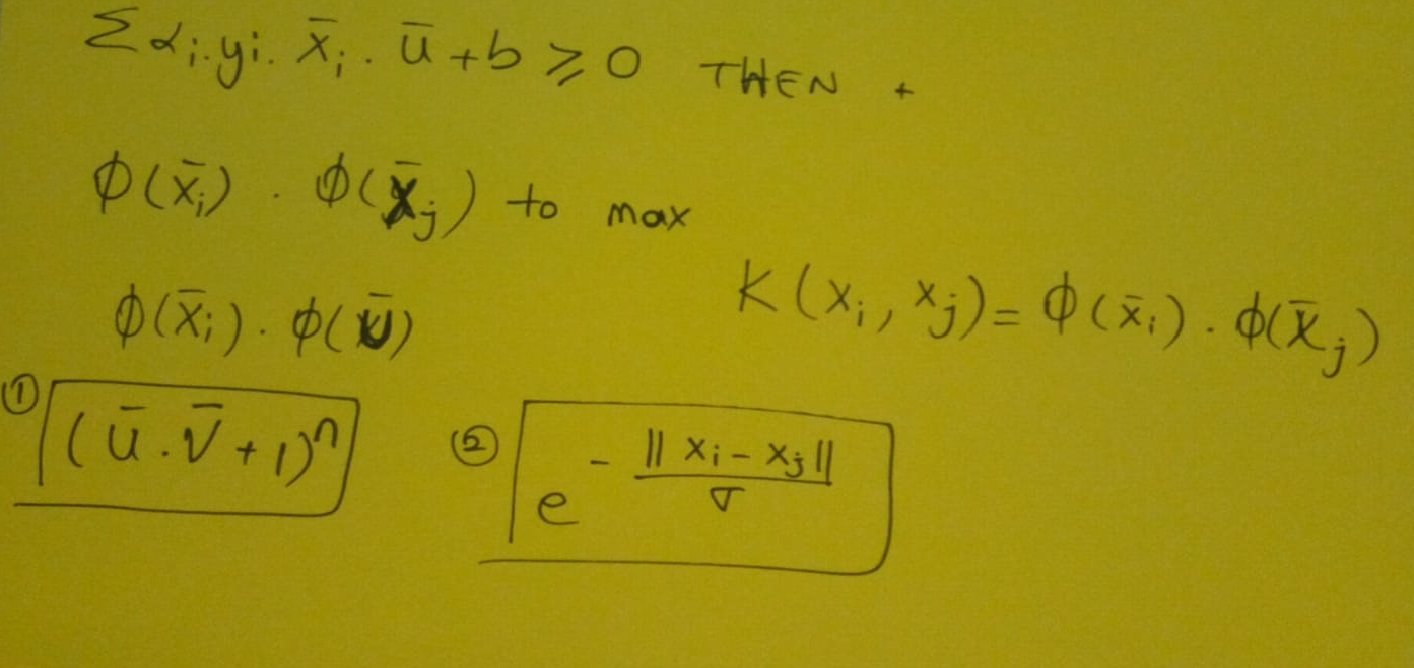 Σ αi. yi. x̄i . ū + b ⩾ 0 THEN +
ϕ(x̄i) . ϕ(x̄j) to max
K(xi, xj) = ϕ(x̄i) . ϕ(x̄j)
ϕ(x̄i) . ϕ(ū)
① (ū . v̄ + 1)ⁿ
② e^(- ‖xi - xj‖ / σ)